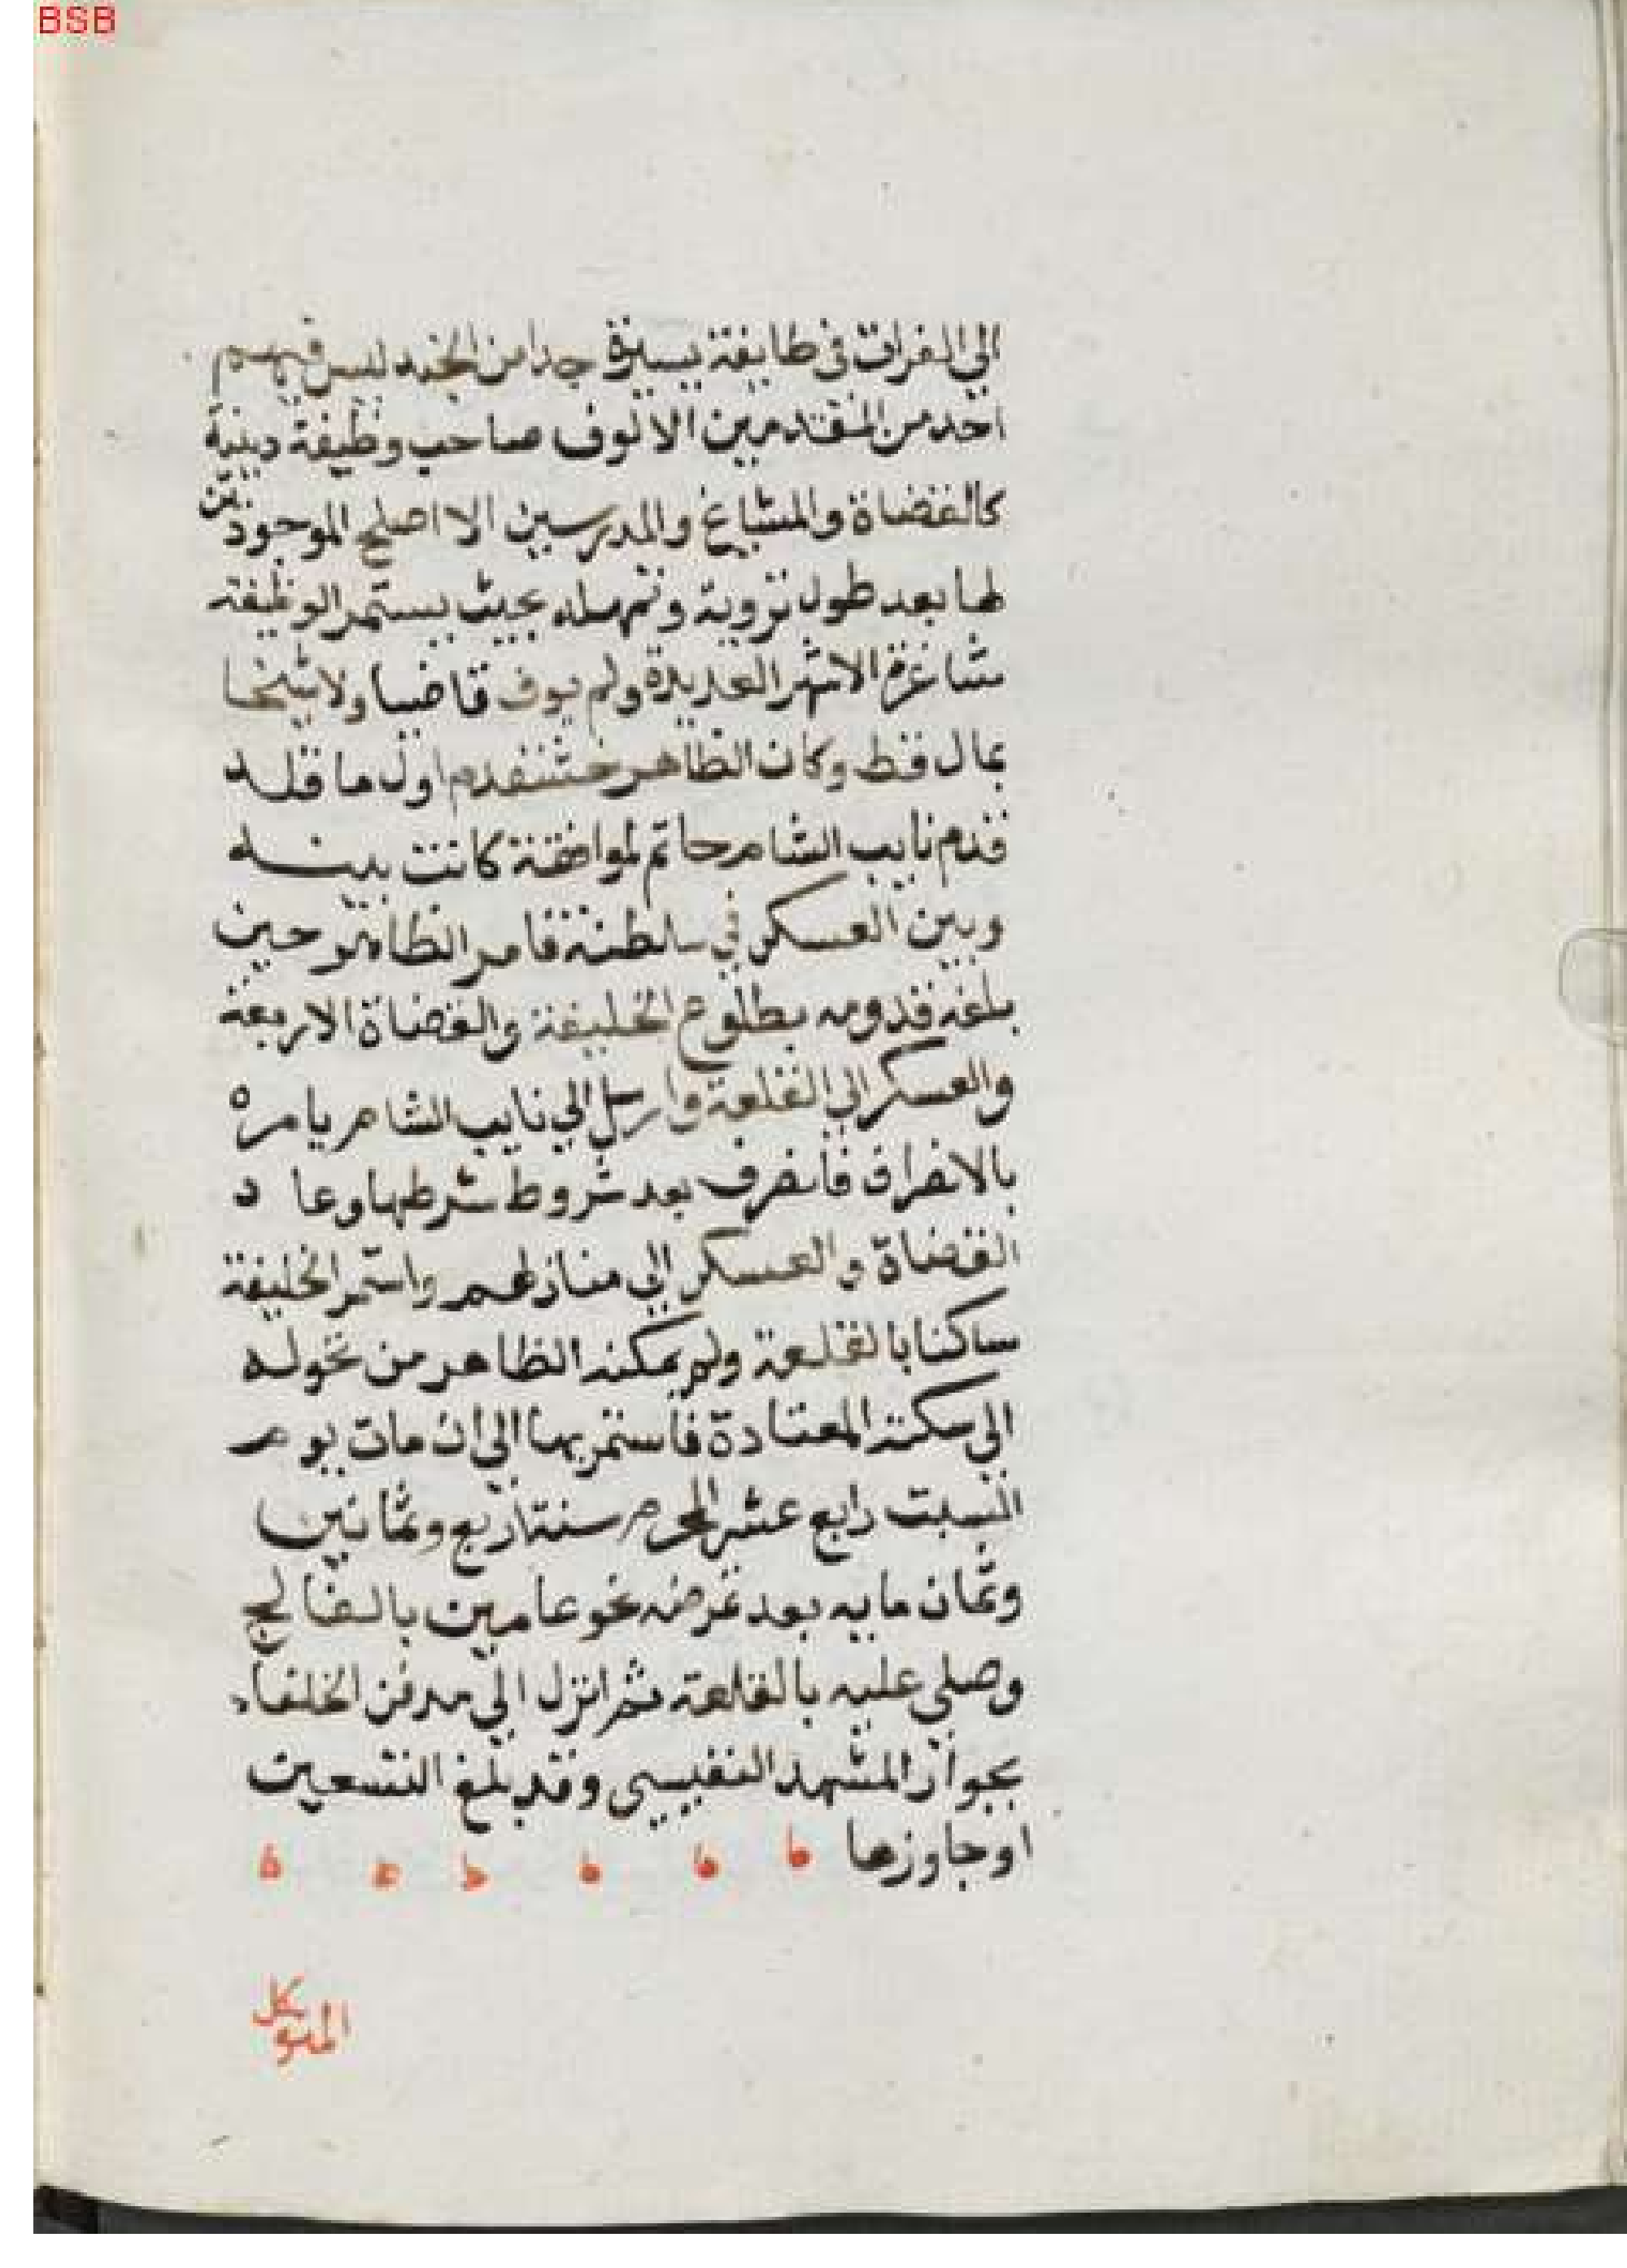 BSB
الي الفرات في طايفة يسيرة جدا من الجند ليس فيهم
احد من المقدمين الالوف صاحب وظيفة دينية
كالقضاة والمشايخ والمدرسين الا اصلح الموجودين
لها بعد طول تروية وتمهله بحيث يستمر الوظيفة
شاغرة الاشهر العديدة ولم يوف قاضيا ولا شيخا
بمال قط وكان الظاهر خشقدم اول ما قلد
قدم نايب الشام جانم لموافقة كانت بينه
وبين العسكر في سلطنة فامر الظاهر حين
بلغه قدومه بطلوع الخليفة والقضاة الاربعة
والعسكر الي القلعة وارسل الي نايب الشام يامره
بالانصراف فانصرف بعد شروط شرطها وعاد
القضاة والعسكر الي منازلهم واستمر الخليفة
ساكنا بالقلعة ولم يمكنه الظاهر من نحوله
الي سكنه المعتادة فاستمر بها الي ان مات يوم
السبت رابع عشر المحرم سنة اربع وثمانين
وثمان مايه بعد تمرضه نحو عامين بالفالج
وصلي عليه بالقلعة ثم انزل الي مدفن الخلفاء
بجوار المشهد النفيسي وقد بلغ التسعين
او جاوزها
المتوكل